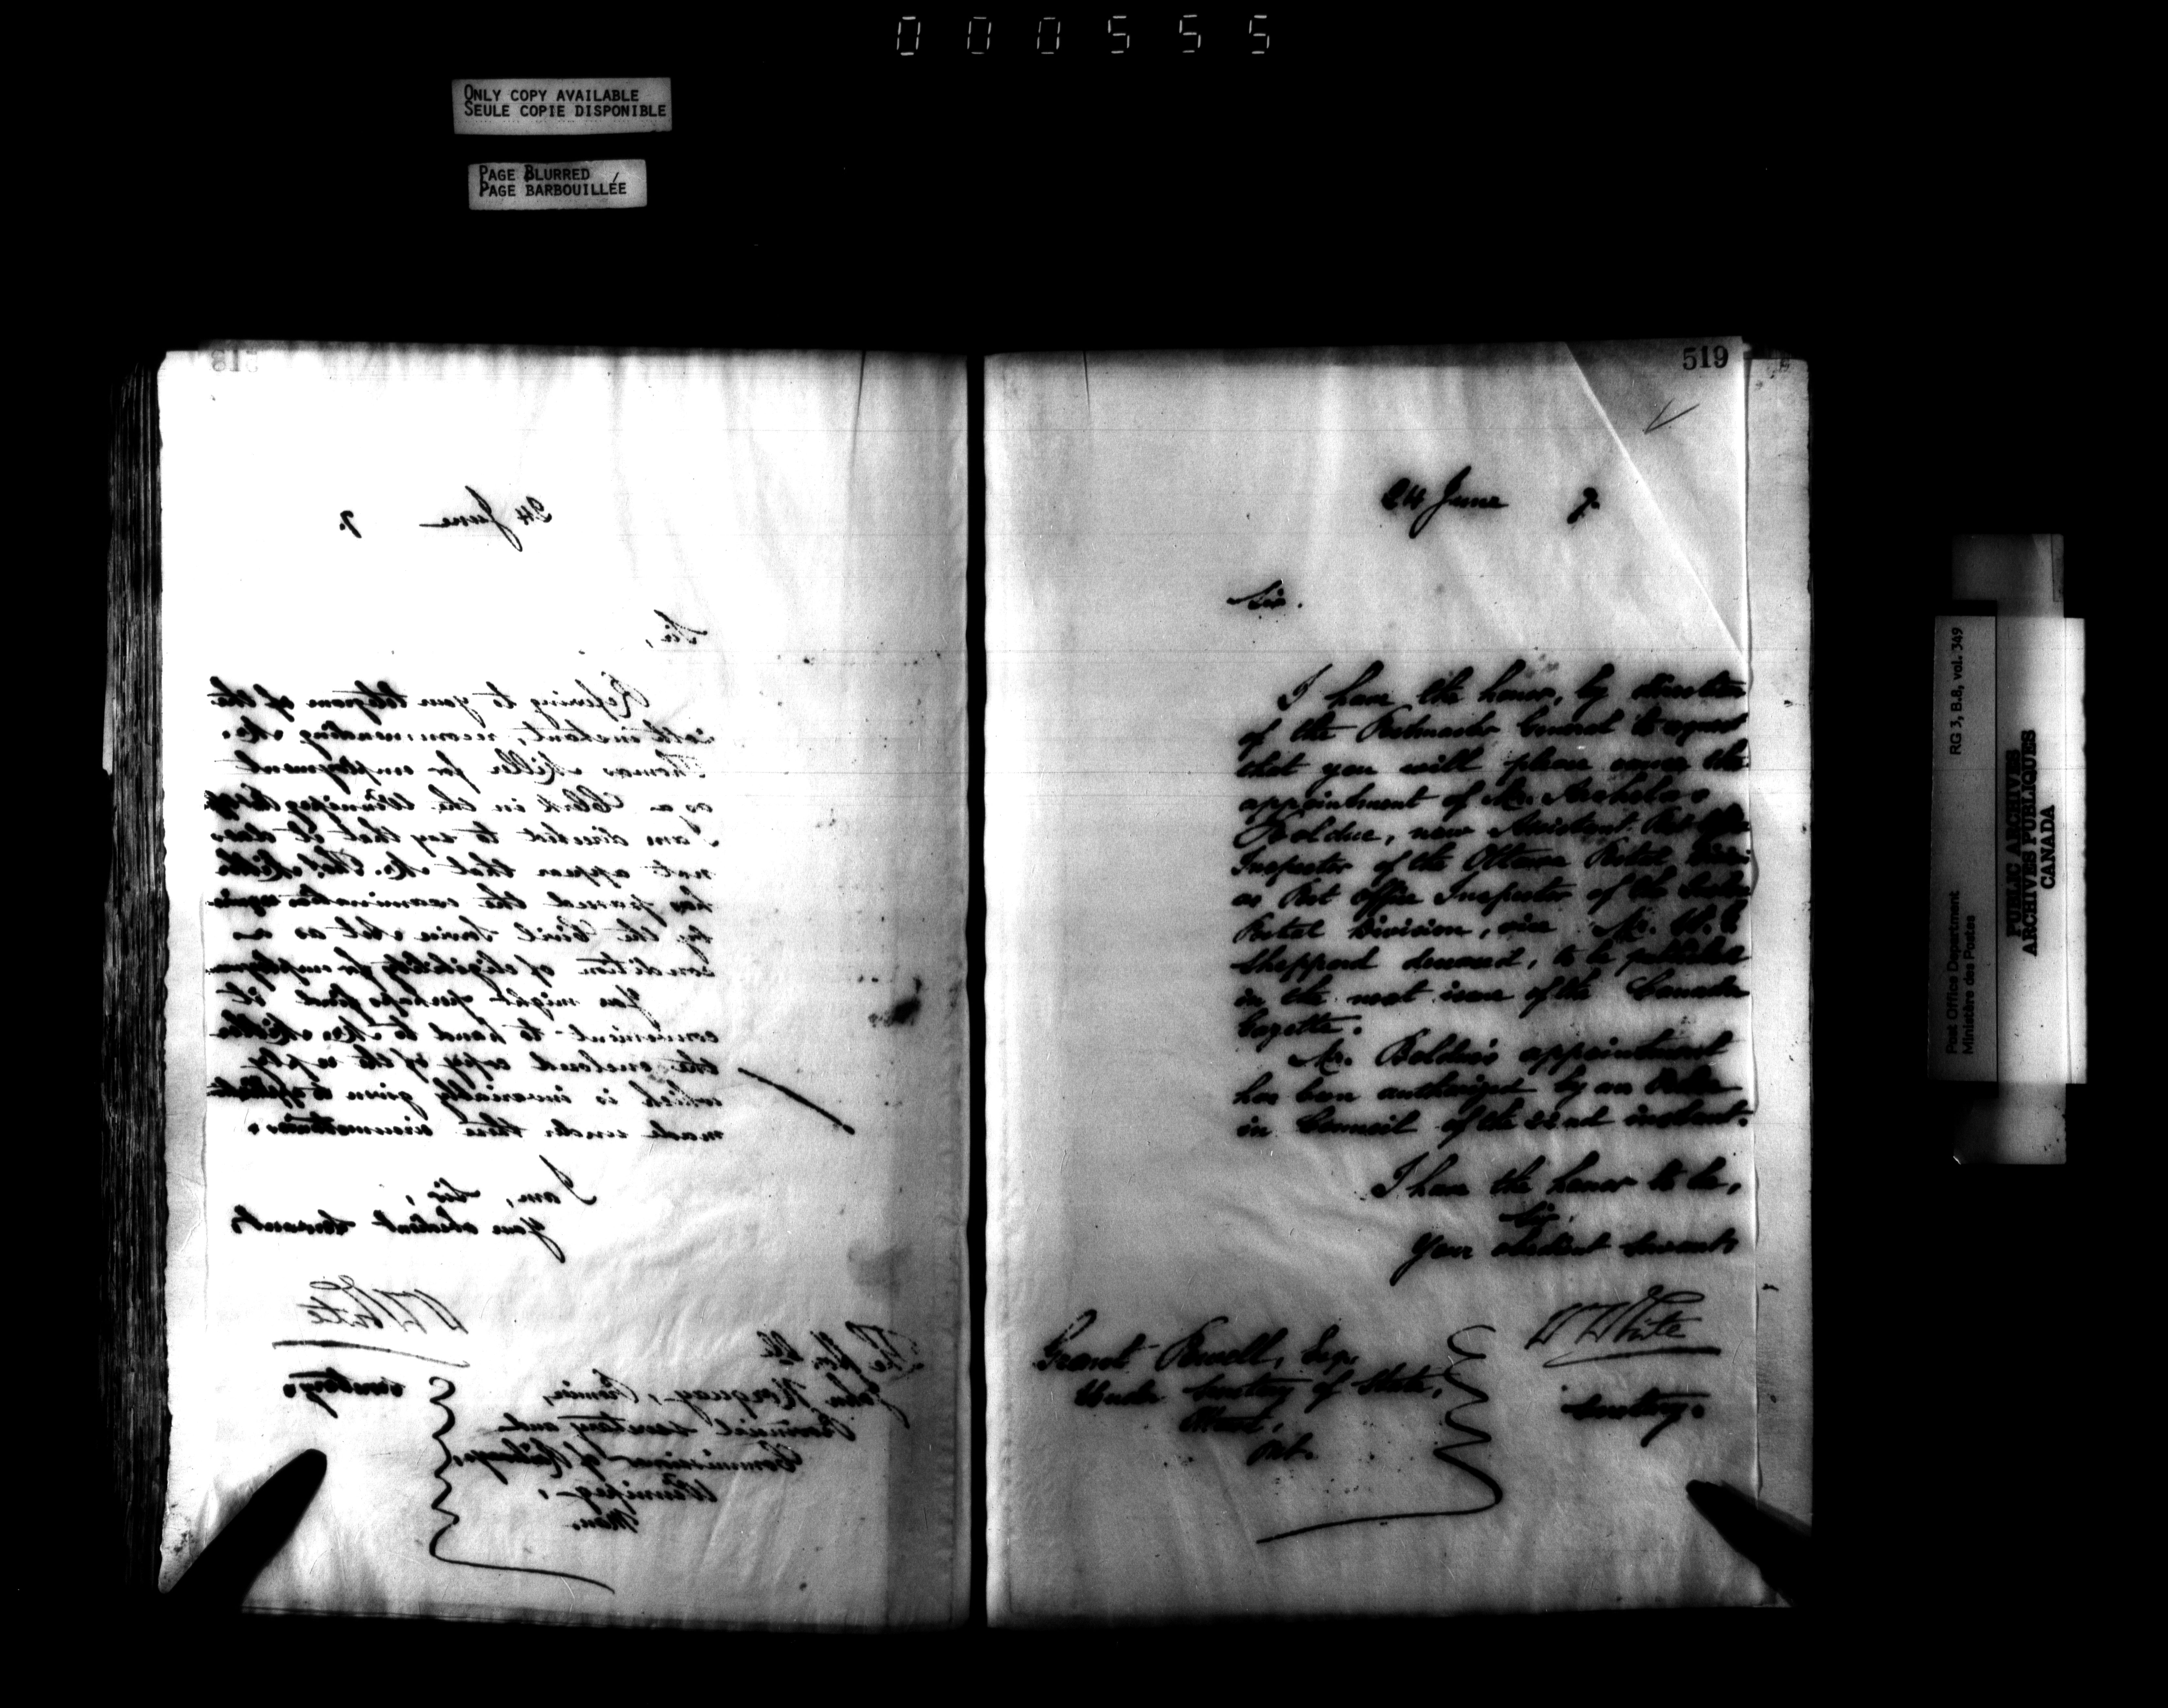 0 0 0 5 5 5
ONLY COPY AVAILABLE
SEULE COPIE DISPONIBLE
PAGE BLURRED
PAGE BARBOUILLÉE
518
24 June 7.
Sir,
Refering to your telegram of the
instant, recommending Mr.
Thomas Miller for employment
as a Clerk in the Winnipeg
I am directed to say that it does
not appear that Mr. Thos. Miller
has passed the examination
by the Civil Service Act as a
condition of eligibility for
You might perhaps find it
convenient to hand to Mr. Miller
the enclosed copy of the reply
which is invariably given to
made under these circumstances.
I am, Sir,
Your obedient Servant,
W White
Secretary.
The Hon. Mr
John Norquay, Premier,
Provincial Secretary and
Commissioner of Railways,
Winnipeg,
Man.
519
24 June 7.
Sir.
I have the honor, by direction
of the Postmaster General to request
that you will please cause the
appointment of Mr.
Bolduc, now Assistant Post Office
Inspector of the Ottawa Postal Divn.
as Post Office Inspector of the
Postal Division, vice Mr. W. G.
Sheppard deceased, to be published
in the next issue of the Canada
Gazette.
Mr. Bolduc's appointment
has been authorized by an Order
in Council of the 22nd instant.
I have the honor to be,
Sir,
Your obedient Servant,
W White
Secretary.
Grant Powell, Esq.
Under Secretary of State,
Ottawa,
Ont.
RG 3, B.8, vol. 349
Post Office Department
Ministère des Postes
PUBLIC ARCHIVES
ARCHIVES PUBLIQUES
CANADA